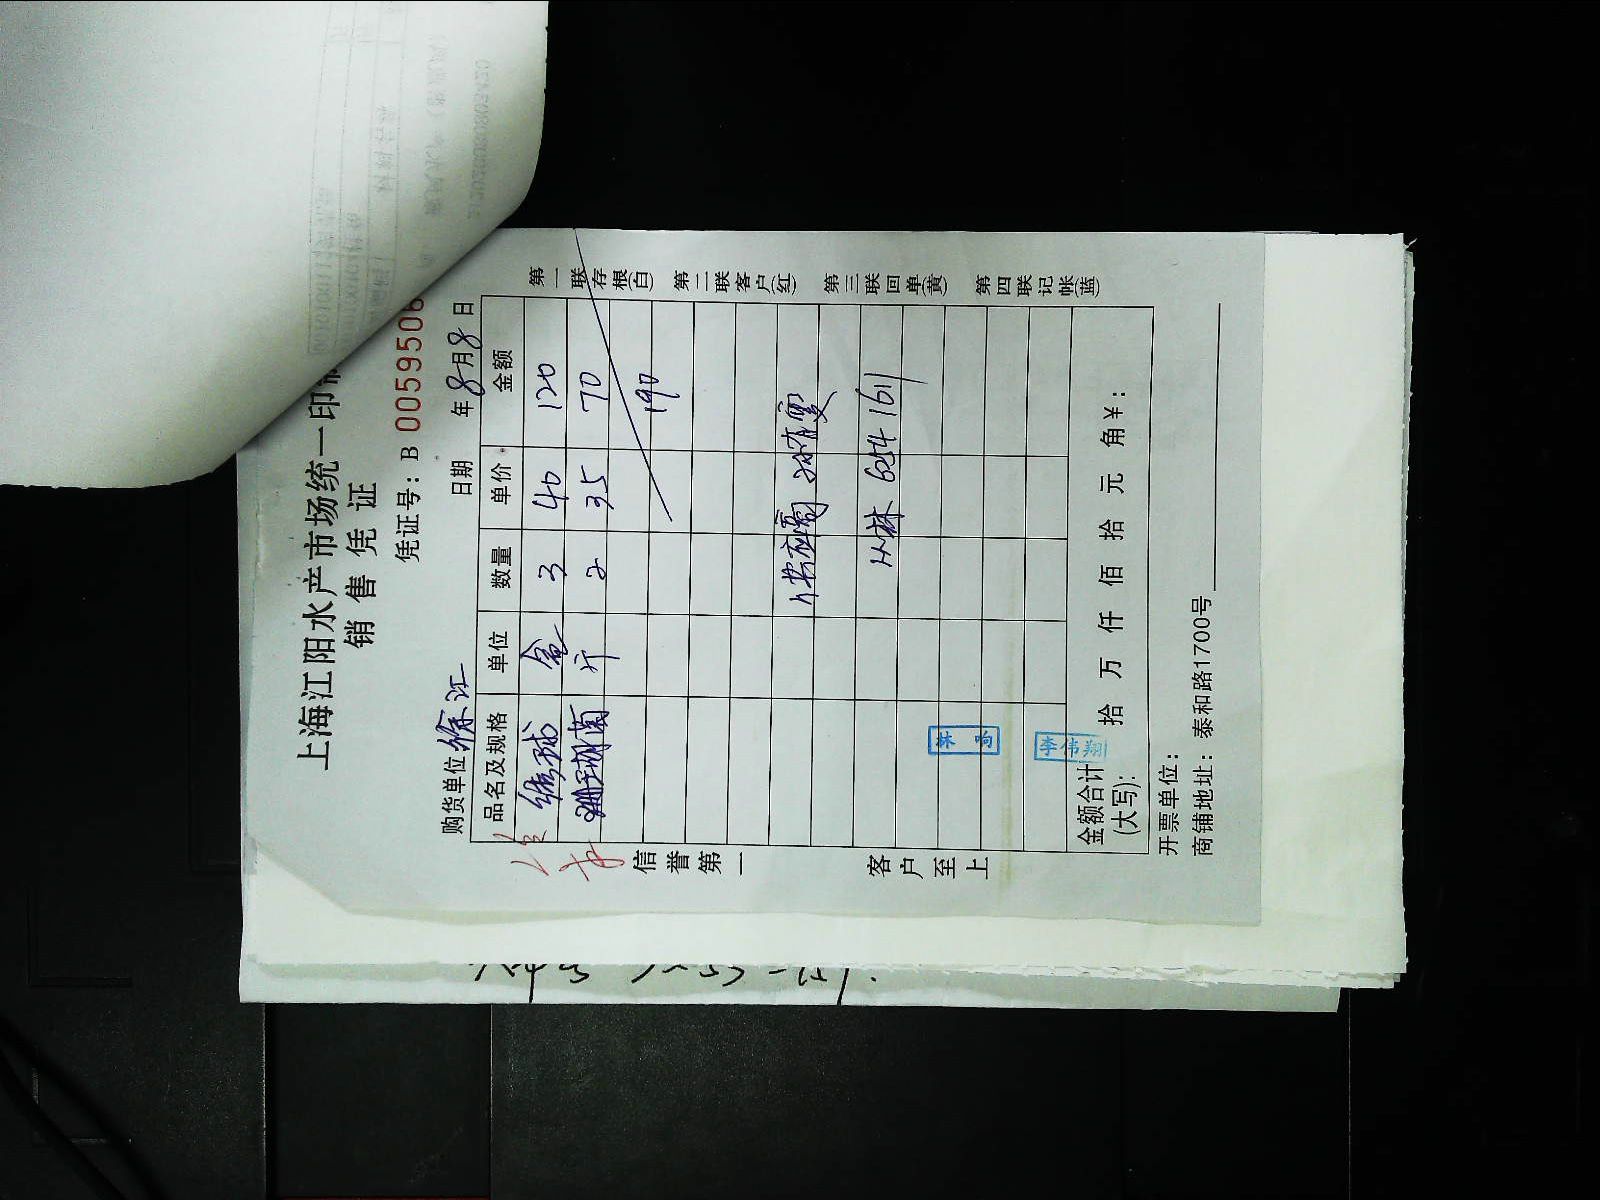 上海江阳水产市场统一印制
销售凭证
凭证号：B 0059506
购货单位 徐江 日期 年8月8日
品名及规格 单位 数量 单价 金额
绣球 盒 3 40 120
珊瑚菌 斤 2 35 70
190
小林 654 1611
林响
李伟翔
金额合计(大写): 拾 万 仟 佰 拾 元 角¥：
开票单位：
商铺地址： 泰和路1700号
信誉第一
客户至上
第一联存根(白)
第二联客户(红)
第三联回单(黄)
第四联记帐(蓝)